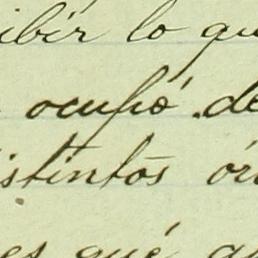 ibir lo qu
ocupó de
istintos ór
es qué a